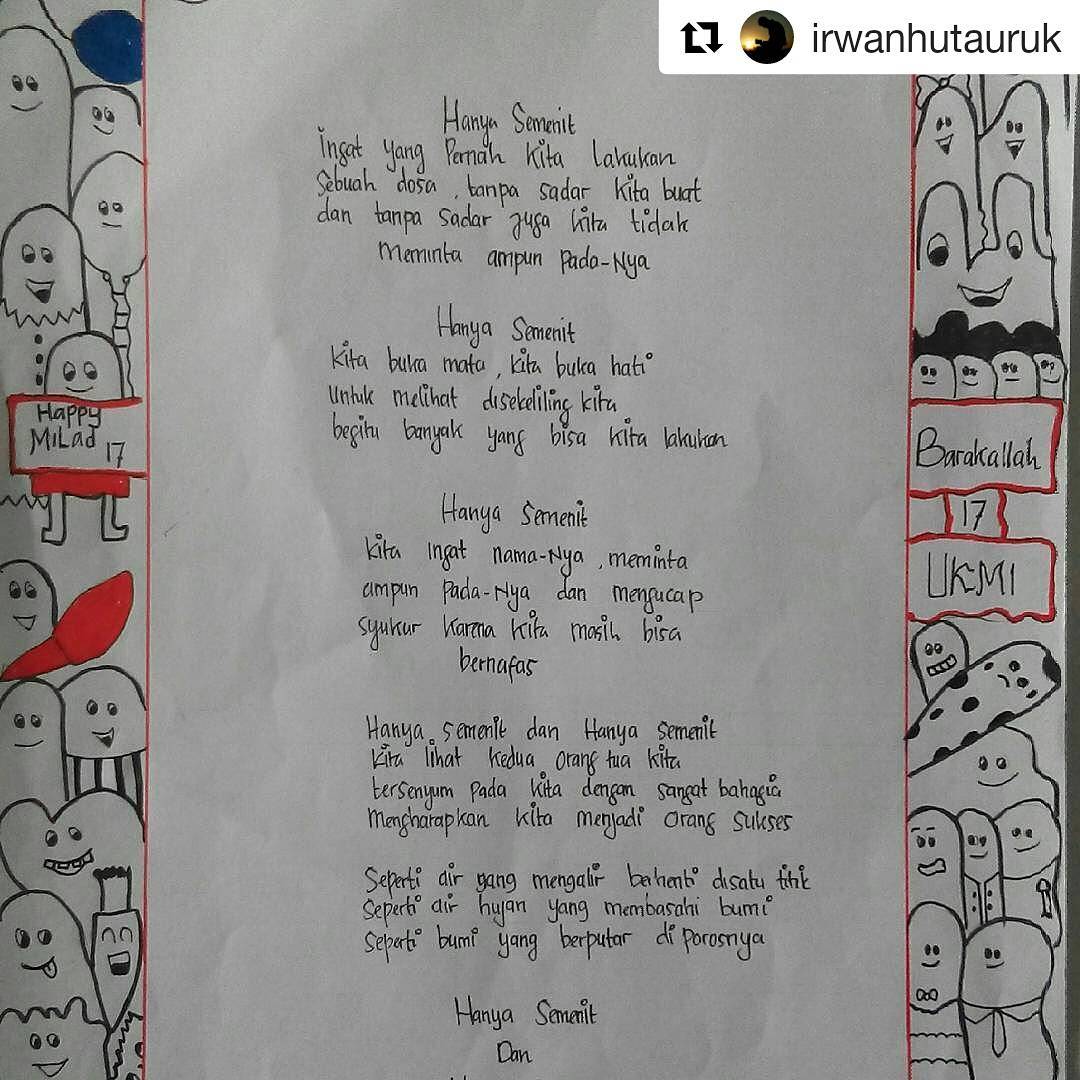 irwanhutauruk
Hanya Semenit
ingat yang Pernah kita lakukan
Sebuah dosa, tanpa sadar kita buat
dan tanpa sadar juga kita tidak
Meminta ampun Pada-Nya
Hanya Semenit
kita buka mata, kita buka hati
Untuk melihat disekeliling kita
begitu banyak yang bisa kita lakukan
Hanya Semenit
kita Ingat nama-Nya, meminta
ampun Pada-Nya dan mengucap
syukur karena kita masih bisa
bernafas
Hanya semenit dan Hanya semenit
kita lihat kedua orang tua kita
tersenyum Pada kita dengan sangat bahagia
Mengharapkan kita menjadi orang sukses
Seperti air yang mengalir berhenti disatu titik
Seperti air hujan yang membasahi bumi
Seperti bumi yang berputar di Porosnya
Hanya Semenit
Dan
Happy
MiLad 17
Barakallah
17
UKMI